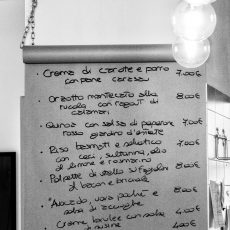 · Crema di carote e porro 7,00€
con pane carasau
· Orzotto mantecato alla 8,00€
rucola con ragout di
calamari
· Quinoa con salsa di peperone 7,00€
rosso giardino d'estate
· Riso basmati e selvatico 7,00€
con ceci, sultanina, olio
al limone e rosmarino
· Polpette di stallo su fagiolini 8,00€
al bacon e
· "Avocado, uova poché e 8,00€
salsa di acciughe
· Crème brulée con salsa 4,00€
di susine 4,00€